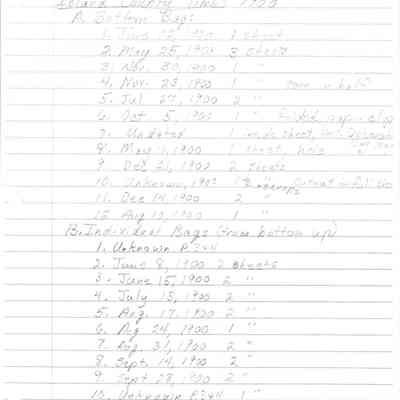 Island County Times 1900
A. Bottom Bag:
1. June 1900 1 sheet
2. May 25, 1900 3 sheets
3. Nov. 30, 1900 1 "
4. Nov. 23, 1900 1 " torn in half
5. Jul 27, 1900 2 "
6. Oct 5, 1900 1 "
7. Undated 1 sheet,
8. May 1, 1900 1 sheet, hole
9. Dec 21, 1900 2 sheets
10. Unknown, 190? 1
11. Dec 14, 1900 2 "
12. Aug 10, 1900 1 "
B. Individual Bags (from bottom up)
1. Unknown P. 3+4
2. June 8, 1900 2 sheets
3. June 15, 1900 2 "
4. July 13, 1900 2 "
5. Aug. 17, 1900 2 "
6. Aug 24, 1900 1 "
7. Aug. 31, 1900 2 "
8. Sept. 14, 1900 2 "
9. Sept 28, 1900 2 "
10. Unknown P. 3+4 1 "